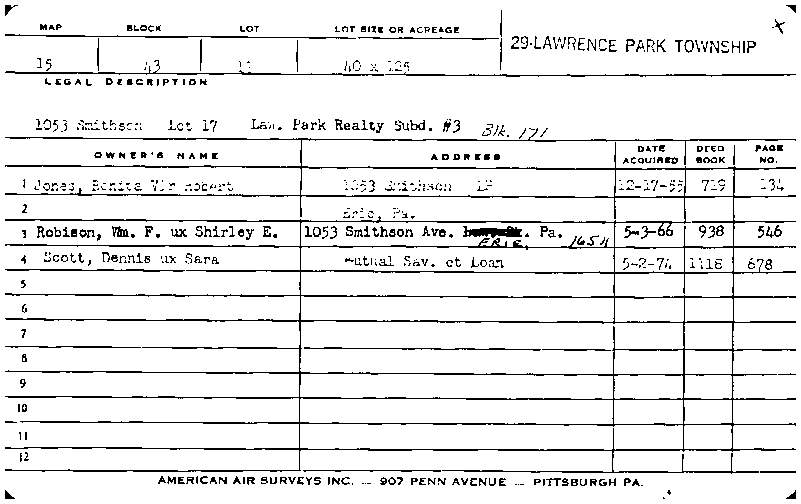 MAP BLOCK LOT LOT SIZE OR ACREAGE
29-LAWRENCE PARK TOWNSHIP X
15 43 11 40 x 125
LEGAL DESCRIPTION
1053 Smithson Lot 17 Law. Park Realty Subd. #3 Blk. 171
OWNER'S NAME ADDRESS DATE ACQUIRED DEED BOOK PAGE NO.
1 Jones, Bonita Vir Robert 1053 Smithson LP 12-17-55 719 134
2 Erie, Pa.
3 Robison, Wm. F. ux Shirley E. 1053 Smithson Ave. Pa. 5-3-66 938 546
ERIE 16511
4 Scott, Dennis ux Sara Mutual Sav. et Loan 5-2-74 1118 678
5
6
7
8
9
10
11
12
AMERICAN AIR SURVEYS INC. — 907 PENN AVENUE — PITTSBURGH PA.